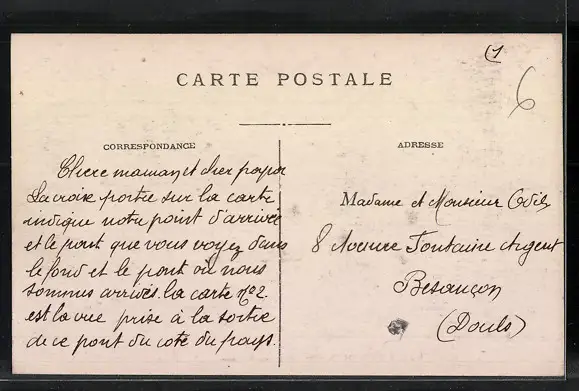 (1
6
CARTE POSTALE
CORRESPONDANCE
ADRESSE
Chere maman et cher papa
La croix portée sur la carte
indique notre point d'arrivée
et le pont que vous voyez dans
le fond et le pont où nous
sommes arrivés. la carte No 2
est la vue prise à la sortie
de ce pont du coté du pays.
Madame et Monsieur
8 Avenue Fontaine Argent
Besançon
(Doubs)